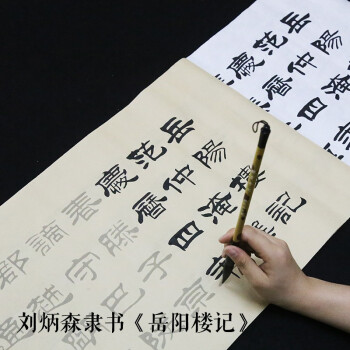 岳陽
范仲淹
慶曆四
岳陽樓記
范仲淹
慶曆四年
春滕子京
謫守巴
郡越
刘炳森隶书《岳阳楼记》